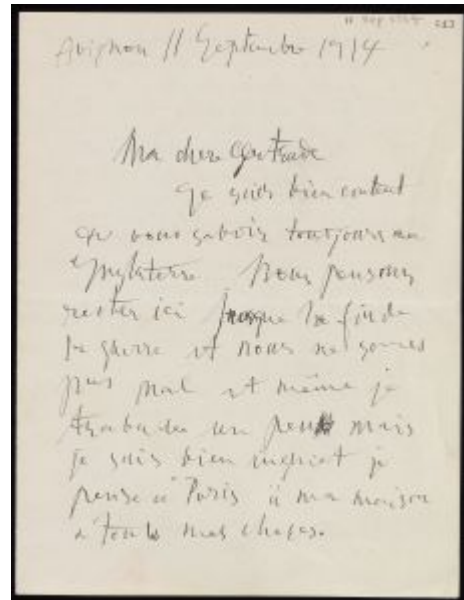 11 Sep 1914
Avignon 11 Septembre 1914
Ma chere Gertrude
Je suis bien content
de vous savoir toutjours en
Inglaterre Nous pensons
rester ici jusque la fin de
la guerre et nous ne somes
pas mal et même je
trabaille un peu mais
je suis bien inquiet je
pense a Paris a ma maison
a toute mes choses.